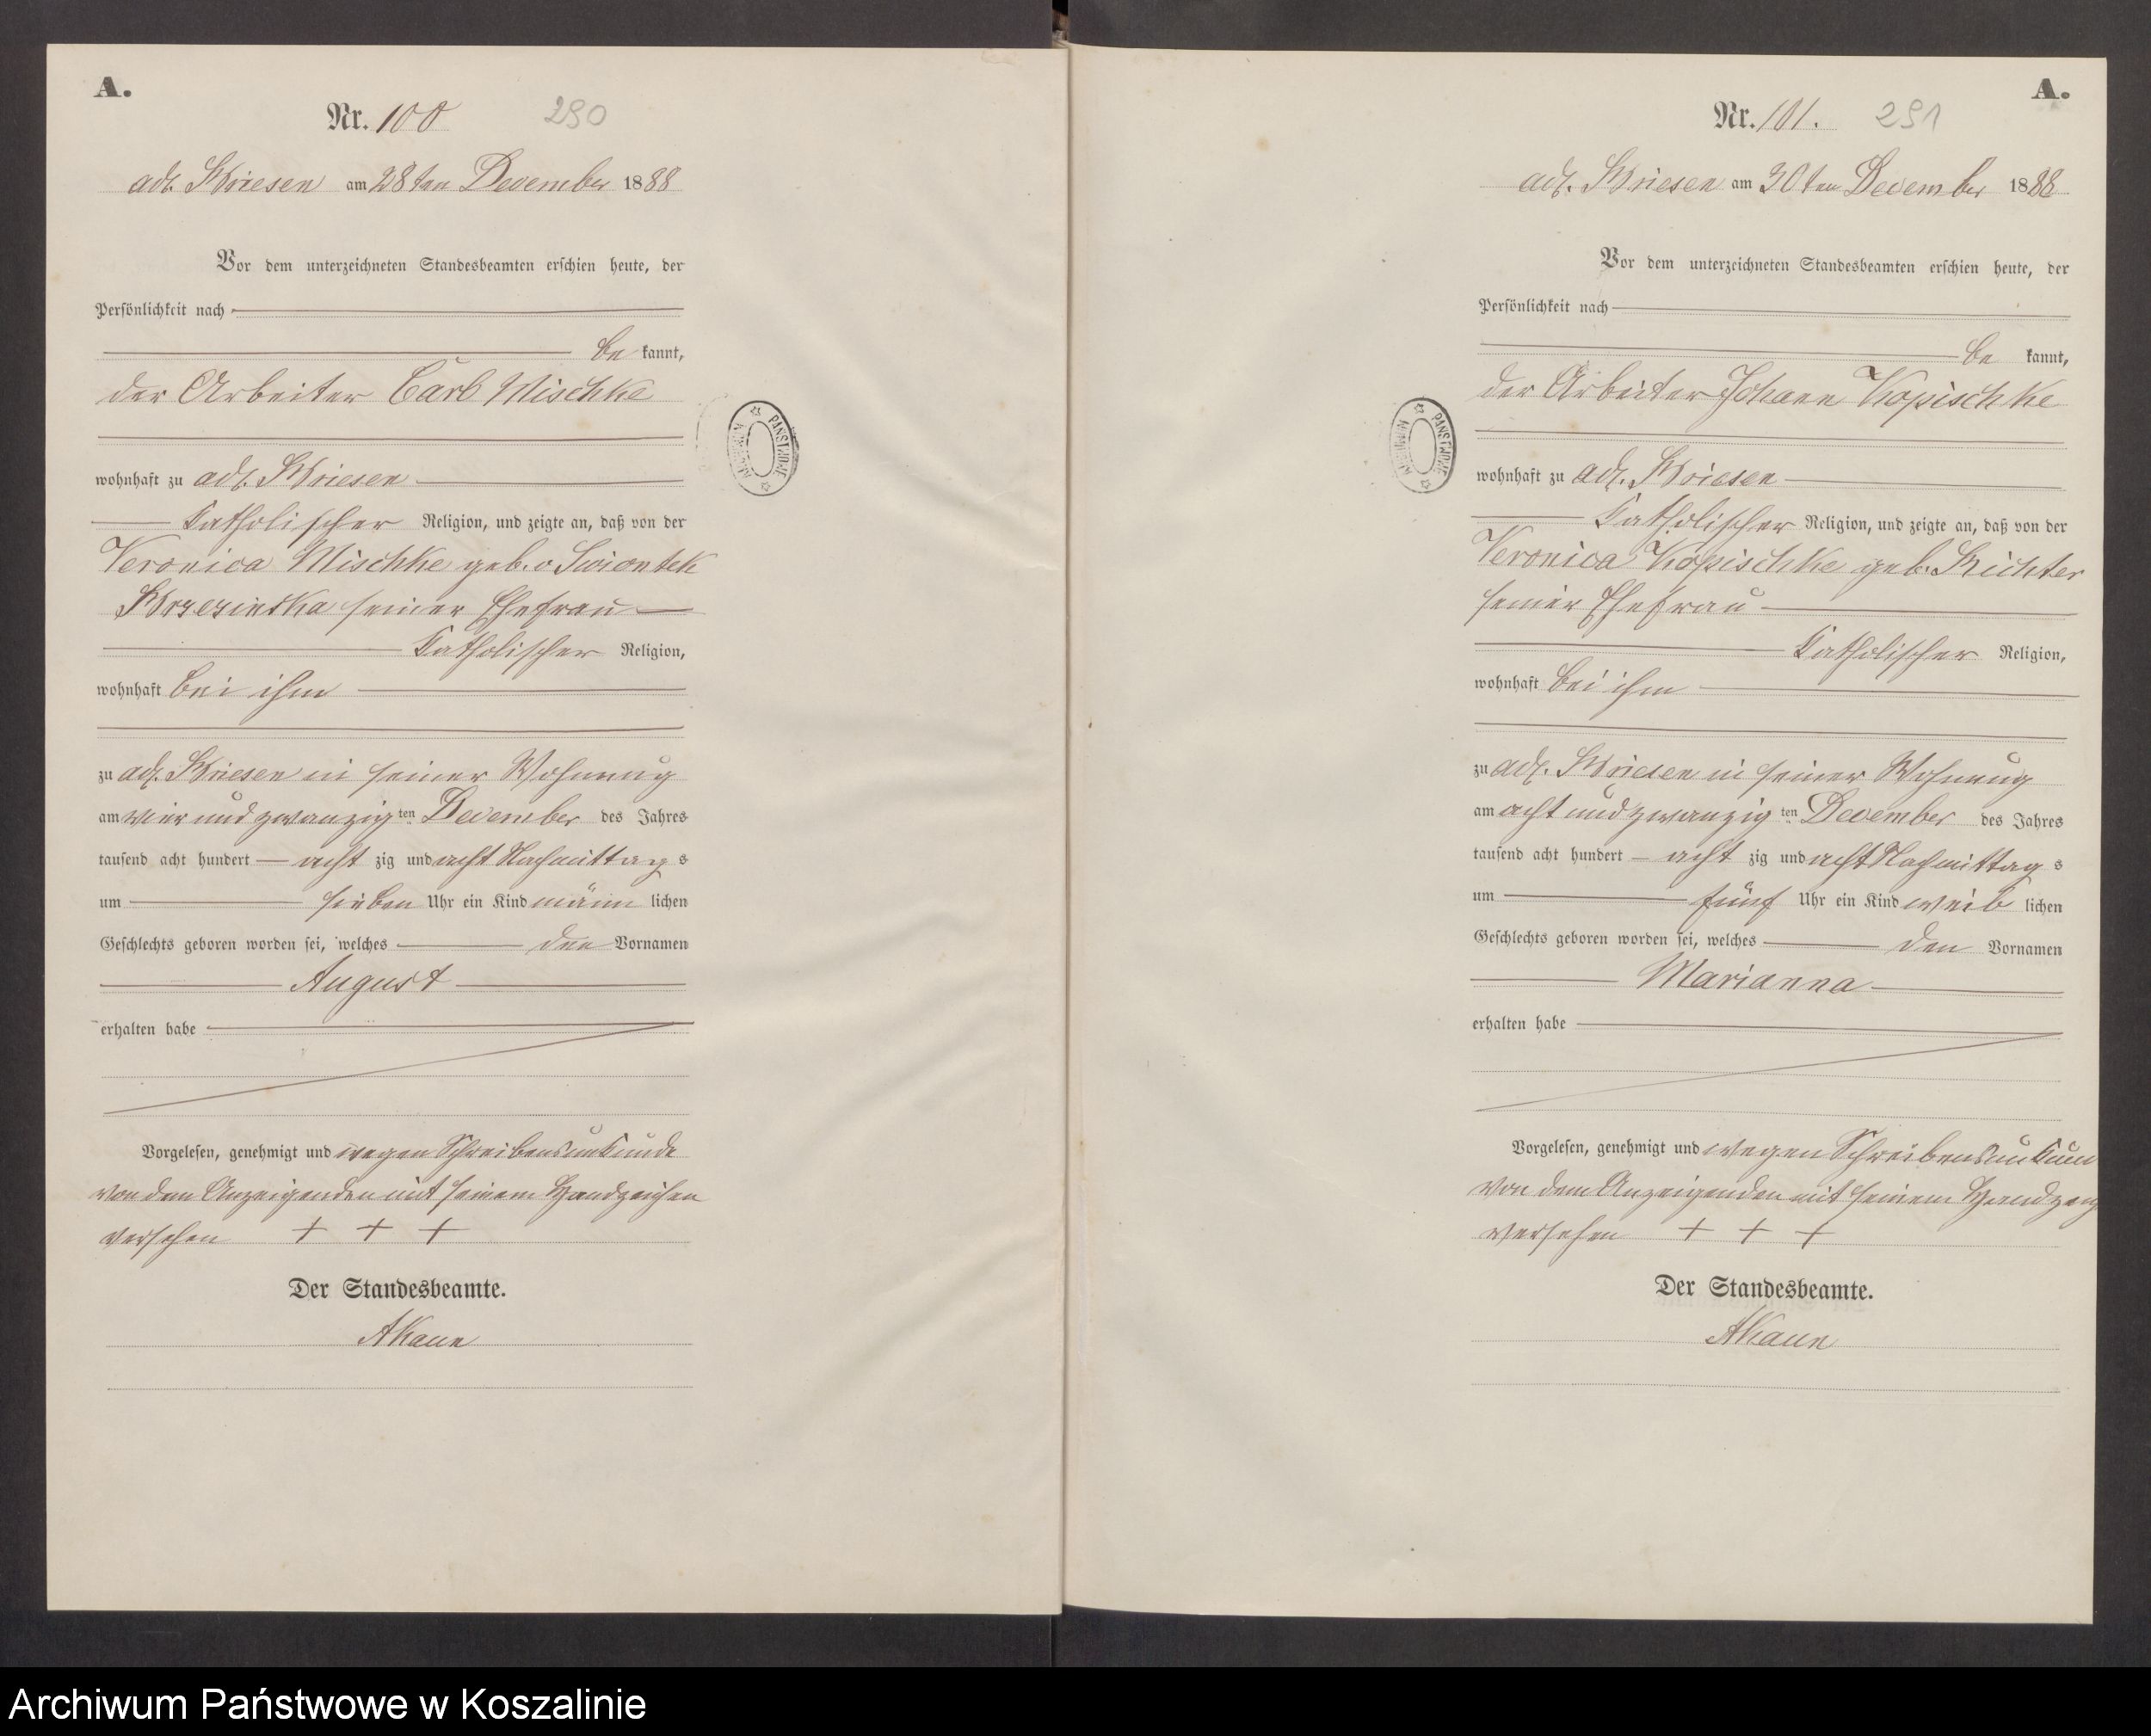 A.
Nr. 100
290
adl. Briesen am 28ten December 1888
Vor dem unterzeichneten Standesbeamten erschien heute, der
Persönlichkeit nach
be kannt,
der Arbeiter Carl Mischke
wohnhaft zu adl. Briesen
katholischer Religion, und zeigte an, daß von der
Veronica Mischke geb. v Swiontek
Brzezinska seiner Ehefrau
katholischer Religion,
wohnhaft bei ihm
zu adl. Briesen in seiner Wohnung
am vier und zwanzig ten December des Jahres
tausend acht hundert acht zig und acht Nachmittag s
um sieben Uhr ein Kind männ lichen
Geschlechts geboren worden sei, welches den Vornamen
August
erhalten habe
Vorgelesen, genehmigt und wegen Schreibensunkunde
von dem Anzeigenden mit seinem Handzeichen
versehen + + +
Der Standesbeamte.
A.
Nr. 101.
291
adl. Briesen am 30ten December 1888
Vor dem unterzeichneten Standesbeamten erschien heute, der
Persönlichkeit nach
be kannt,
der Arbeiter Johann Kopischke
wohnhaft zu adl. Briesen
katholischer Religion, und zeigte an, daß von der
Veronica Kopischke geb. Richter
seiner Ehefrau
katholischer Religion,
wohnhaft bei ihm
zu adl. Briesen in seiner Wohnung
am acht und zwanzig ten December des Jahres
tausend acht hundert acht zig und acht Nachmittag s
um fünf Uhr ein Kind weib lichen
Geschlechts geboren worden sei, welches den Vornamen
Marianna
erhalten habe
Vorgelesen, genehmigt und wegen
von dem Anzeigenden mit seinem
versehen + + +
Der Standesbeamte.
Archiwum Państwowe w Koszalinie